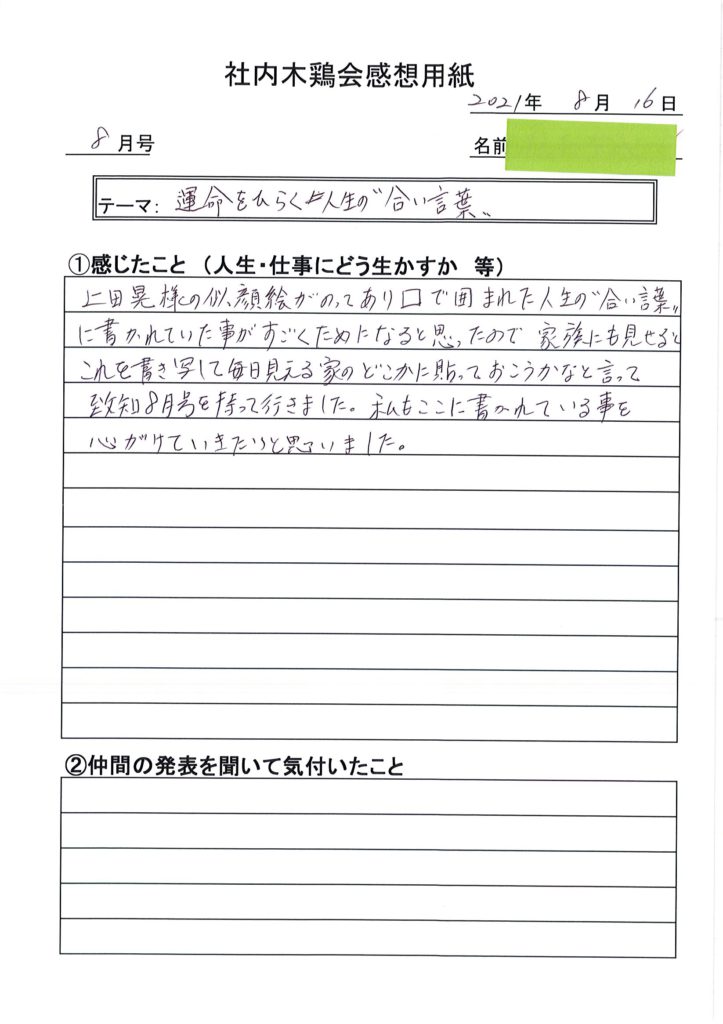 社内木鶏会感想用紙
2021年 8月 16日
8月号
名前
テーマ: 運命をひらく 人生の"合い言葉"
①感じたこと (人生・仕事にどう生かすか 等)
上田晃様の似顔絵がのってあり口で囲まれた人生の"合い言葉"
に書かれていた事がすごくためになると思ったので 家族にも見せると
これを書き写して毎日見える家のどこかに貼っておこうかなと言って
致知8月号を持って行きました。私もここに書かれている事を
心がけていきたいと思いました。
②仲間の発表を聞いて気付いたこと